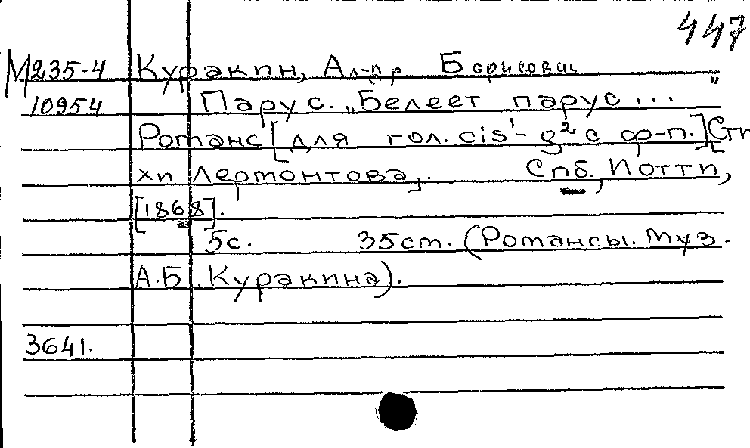 447
М235-4 Куракин, Ал-др Борисович
10954 Парус. „Белеет парус..."
Романс [для гол. cis¹- g² с ф-п.] [Сти
хи Лермонтова]. Спб., Иотти,
[1868].
5с. 35см. (Романсы. муз.
А.Б. Куракина).
3641.